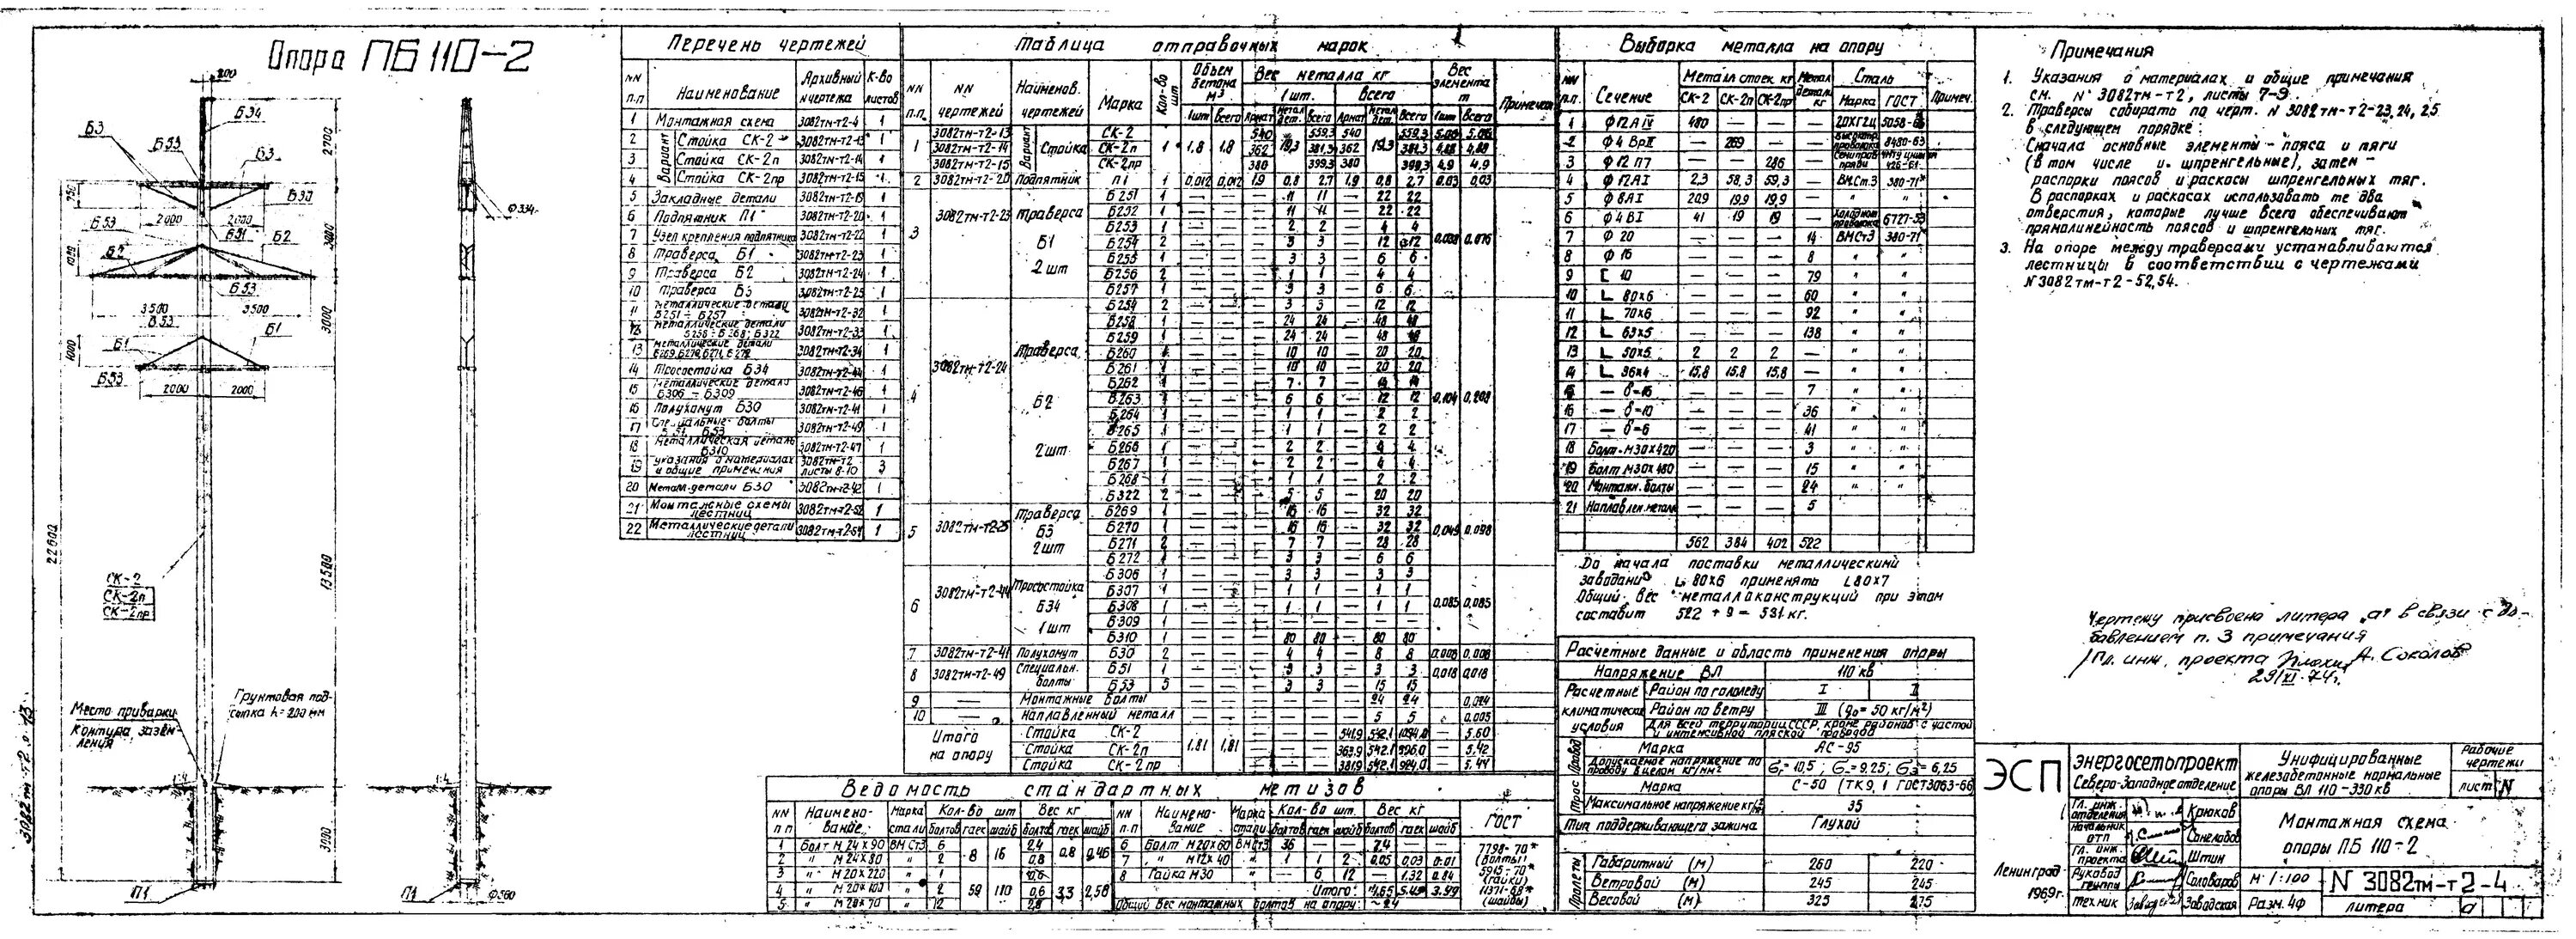 Опора ПБ 110-2
200
Б34
Б3
Б53
Б3
Б30
750
2000 2000
Б53
Б51
Б2
Б2
1000
Б53
3500 3500
Б53
Б1
Б1
1000
Б53
2000 2000
2700
3000
3000
13500
22600
3000
Ф334
СК-2
СК-2п
СК-2пр
Место приварки
контура зазем-
ления
Грунтовая под-
сыпка h=200 мм
1:4
1:4
П1
П1
Ф560
Перечень чертежей
NN п.п Наименование Архивный N чертежа К-во листов
1 Монтажная схема 3082тм-т2-4 1
Вариант
2 Стойка СК-2 3082тм-т2-13 1
3 Стойка СК-2п 3082тм-т2-14 1
4 Стойка СК-2пр 3082тм-т2-15 1
5 Закладные детали 3082тм-т2-19 1
6 Подпятник П1 3082тм-т2-20 1
7 Узел крепления подпятника 3082тм-т2-22 1
8 Траверса Б1 3082тм-т2-23 1
9 Траверса Б2 3082тм-т2-24 1
10 Траверса Б3 3082тм-т2-25 1
11 Металлические детали Б251÷Б257 3082тм-т2-32 1
12 Металлические детали Б258÷Б268; Б322 3082тм-т2-33 1
13 Металлические детали Б269,Б270,Б271,Б272 3082тм-т2-34 1
14 Тросостойка Б34 3082тм-т2-44 1
15 Металлические детали Б306-Б309 3082тм-т2-46 1
16 Полухомут Б30 3082тм-т2-41 1
17 Специальные болты Б51, Б53 3082тм-т2-49 1
18 Металлическая деталь Б310 3082тм-т2-47 1
19 Указания о материалах и общие примечания 3082тм-т2 листы 8-10 3
20 Металл.детали Б30 3082тм-т2-42 1
21 Монтажные схемы лестниц 3082тм-т2-52 1
22 Металлические детали лестниц 3082тм-т2-54 1
Таблица отправочных марок
NN п.п. NN чертежей Наименов. чертежей Марка Кол-во шт Объем бетона м³ Вес металла кг Вес элемента т Примечан
1 шт. Всего
1шт Всего Арнат Метал дет. Всего Арнат Метал дет. Всего 1шт Всего
1 Вариант Стойка 1 1,8 1,8 19,3 19,3
3082тм-т2-13 СК-2 540 559,3 540 559,3 5.06 5.06
3082тм-т2-14 СК-2п 362 381,3 362 381,3 4,88 4,88
3082тм-т2-15 СК-2пр 380 399.3 380 399,3 4.9 4.9
2 3082тм-т2-20 Подпятник П1 1 0,012 0,012 1,9 0,8 2.7 1,9 0,8 2.7 0.03 0,03
3 3082тм-т2-23 Траверса Б1 2 шт 0,038 0.076
Б251 1 — — — 11 11 — 22 22
Б252 1 — — — 11 11 — 22 22
Б253 1 — — — 2 2 — 4 4
Б254 2 — — — 3 3 — 12 12
Б255 1 — — — 3 3 — 6 6
Б256 2 — — — 1 1 — 4 4
Б257 1 — — — 3 3 — 6 6
4 3082тм-т2-24 Траверса Б2 2шт 0,104 0,208
Б254 2 — — — 3 3 — 12 12
Б258 1 — — — 24 24 — 48 48
Б259 1 — — — 24 24 — 48 48
Б260 1 — — — 10 10 — 20 20
Б261 1 — — — 10 10 — 20 20
Б262 1 — — — 7 7 — 14 14
Б263 1 — — — 6 6 — 12 12
Б264 1 — — — 1 1 — 2 2
Б265 1 — — — 1 1 — 2 2
Б266 1 — — — 2 2 — 4 4
Б267 1 — — — 2 2 — 4 4
Б268 1 — — — 1 1 — 2 2
Б322 2 — — — 5 5 — 20 20
5 3082тм-т2-25 Траверса Б3 2шт 0,049 0.098
Б269 1 — — — 16 16 — 32 32
Б270 1 — — — 16 16 — 32 32
Б271 2 — — — 7 7 — 28 28
Б272 1 — — — 3 3 — 6 6
6 3082тм-т2-44 Тросостойка Б34 1 шт 0,085 0,085
Б306 1 — — — 3 3 — 3 3
Б307 1 — — — 1 1 — 1 1
Б308 1 — — — 1 1 — 1 1
Б309 1
Б310 1 — — — 80 80 — 80 80
7 3082тм-т2-41 Полухомут Б30 2 — — — 4 4 — 8 8 0.008 0,008
8 3082тм-т2-49 Специальн. болты 0,018 0,018
Б51 1 — — — 3 3 — 3 3
Б53 5 — — — 3 3 — 15 15
9 — Монтажные болты — — — — — — 24 24 0,024
10 — Наплавленный металл — — — — — — 5 5 0.005
Итого на опору 1,81 1,81
Стойка СК-2 — — — 541.9 542.1 1084.0 — 5.60
Стойка СК-2п — — — 363.9 542.1 906.0 — 5,42
Стойка СК-2пр — — — 381.9 542.1 924.0 — 5.44
Ведомость стандартных метизов
NN п п Наимено-вание Марка стали Кол-во шт Вес кг NN п.п Наимено-вание Марка стали Кол-во шт. Вес кг ГОСТ
болтов гаек шайб болтов гаек шайб болтов гаек шайб болтов гаек шайб
1 Болт М24х90 ВМСт3 6 8 16 2,4 0,8 0,46
2 " М24х80 " 2 0,8
3 " М20х220 " 1 0,6
4 " М20х100 " 2 59 110 0,6 3,3 2,56
5 " М20х70 " 12 2,8
6 Болт М20х60 ВМСт3 36 — 7.4 —
7 " М12х40 " 1 1 2 0,05 0,03 0.01
8 Гайка М30 — 6 12 — 1.32 0.84
Итого:
Общий вес монтажных болтов на опору: ~24
7798-70* (болты)
5915-70* (гайки)
11371-68* (шайбы)
Выборка металла на опору
NN п.п. Сечение Металл стоек кг Метал детали кг Сталь Примеч.
СК-2 СК-2п СК-2пр Марка ГОСТ
1 Ф12АIV 480 — — — 20ХГ2Ц 5058-65
2 Ф4ВрII — 269 — — высокопр. проволока 8480-63
3 Ф12П7 — — 286 —
4 Ф12АI 2,3 58,3 59,3 — ВМСт.3 380-71*
5 Ф8АI 20,9 19,9 19,9 — " "
6 Ф4ВI 41 19 19 — Холоднот. проволока 6727-53
7 Ф20 — — — 14 ВМСт3 380-71*
8 Ф16 — — — 8 " "
9 [ 10 — — — 79 " "
10 L 80х6 — — — 60 " "
11 L 70х6 — — — 92 " "
12 L 63х5 — — — 138 " "
13 L 50х5 2 2 2 — " "
14 L 36х4 15,8 15,8 15,8 — " "
15 — δ=16 — — — 7 " "
16 — δ=10 — — — 36 " "
17 — δ=6 — — — 41 " "
18 Болт М30х420 — — — 3 " "
19 Болт М30х480 — — — 15 " "
20 Монтажн. болты — — — 24 " "
21 Наплавлен.металл — — — 5
562 384 402 522
До начала поставки металлическими
заводами L 80х6 применять L80х7
Общий вес металлоконструкций при этом
составит 522 + 9 = 531 кг.
Расчетные данные и область применения опоры
Напряжение ВЛ 110 кв
Расчетные климатические условия
Район по гололеду I II
Район по ветру III (g₀= 50 кг/м²)
Для всей территории СССР, кроме районов с частой и интенсивной пляской проводов
Провод
Марка АС-95
Допускаемое напряжение по проводу в целом кг/мм² б=10,5; б=9,25; б=6,25
Трос
Марка С-50 (ТК9,1 ГОСТ3063-66
Максимальное напряжение кг/мм² 35
Тип поддерживающего зажима Глухой
Пролеты
Габаритный (м) 260 220
Ветровой (м) 245 245
Весовой (м) 325 275
Примечания
1. Указания о материалах и общие примечания
см. N° 3082тм-т2, листы 7-9.
2. Траверсы собирать по черт. N 3082тм-т2-23,24,25
в следующем порядке:
Сначала основные элементы - пояса и тяги
(в том числе и шпренгельные), затем -
распорки поясов и раскосы шпренгельных тяг.
В распорках и раскосах использовать те два
отверстия, которые лучше всего обеспечивают
прямолинейность поясов и шпренгельных тяг.
3. На опоре между траверсами устанавливаются
лестницы в соответствии с чертежами
N3082тм-т2-52,54.
Чертежу присвоена литера „а" в связи с до-
бавлением п. 3 примечания
Гл. инж. проекта А. Соколов
29/XI-74г.
ЭСП
Энергосетьпроект
Северо-Западное отделение
Унифицированные
железобетонные нормальные
опоры ВЛ 110-330 кв
Рабочие
чертежи
лист N
Гл. инж. отделения Крюков
Начальник ОТП Синелобов
Гл. инж. проекта Штин
Руковод группы Соловаров
техник Заводская
Монтажная схема
опоры ПБ 110-2
Ленинград
1969г.
М 1:100
Разм. 4Ф
N 3082тм-т2-4
литера а
3082тм-т2